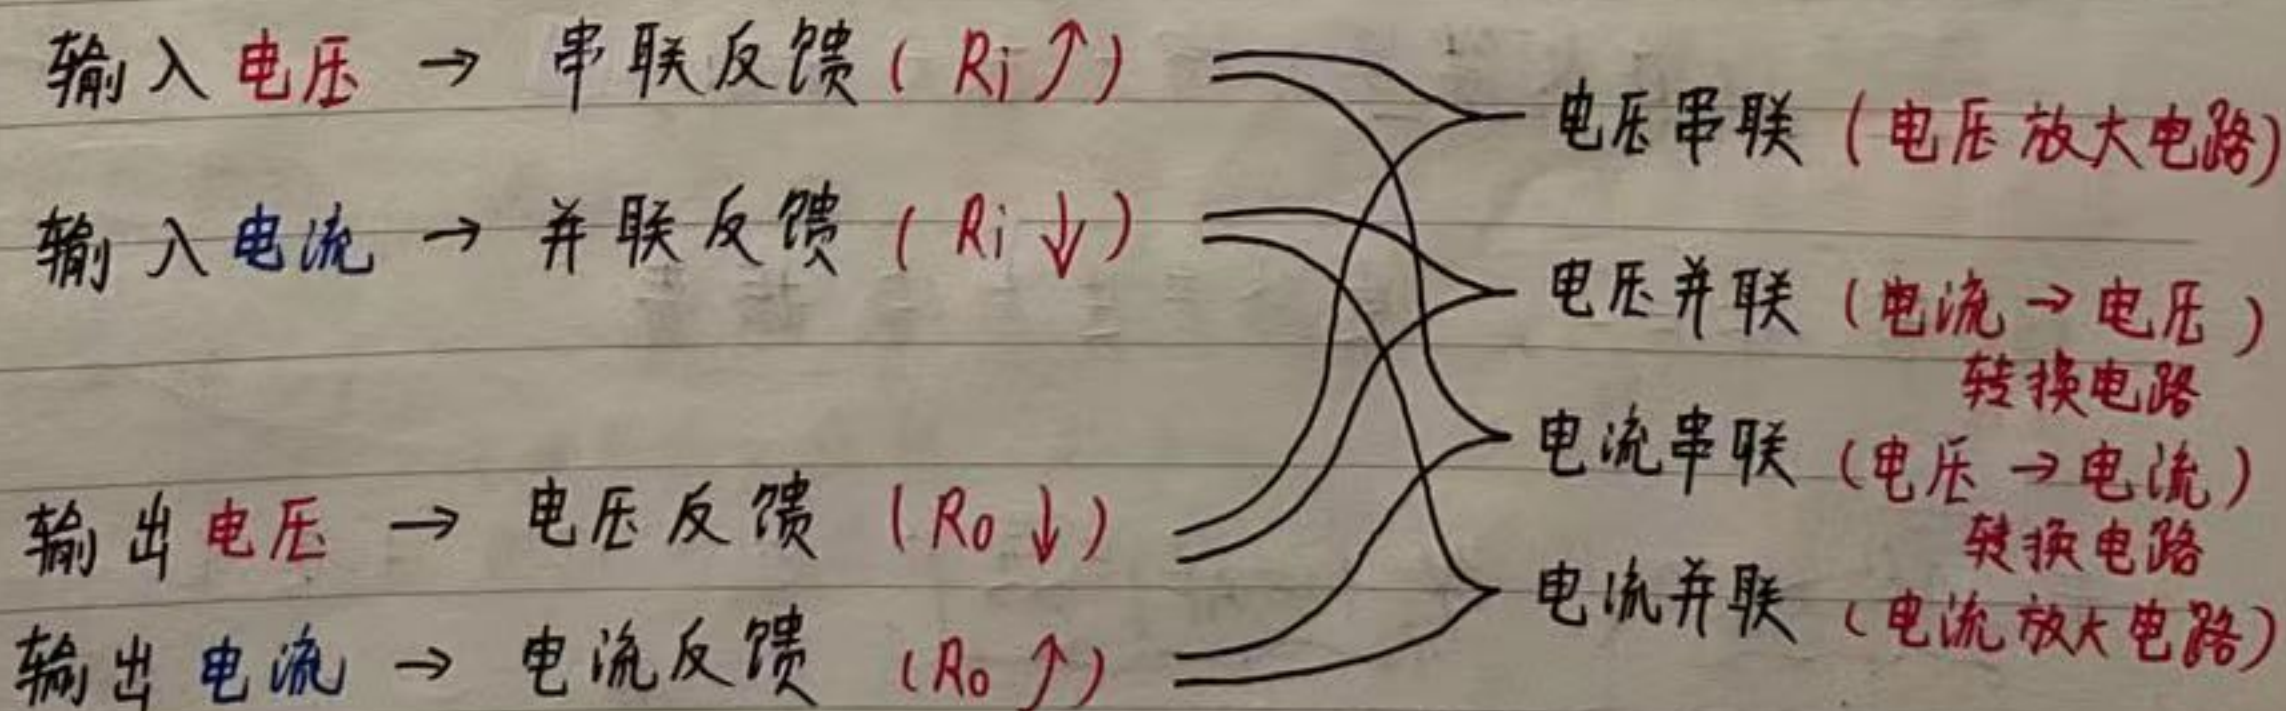 输入电压 → 串联反馈 ( Ri ↑ )
输入电流 → 并联反馈 ( Ri ↓ )
输出电压 → 电压反馈 ( Ro ↓ )
输出电流 → 电流反馈 ( Ro ↑ )
电压串联 ( 电压放大电路 )
电压并联 ( 电流 → 电压 )
转换电路
电流串联 ( 电压 → 电流 )
转换电路
电流并联 ( 电流放大电路 )